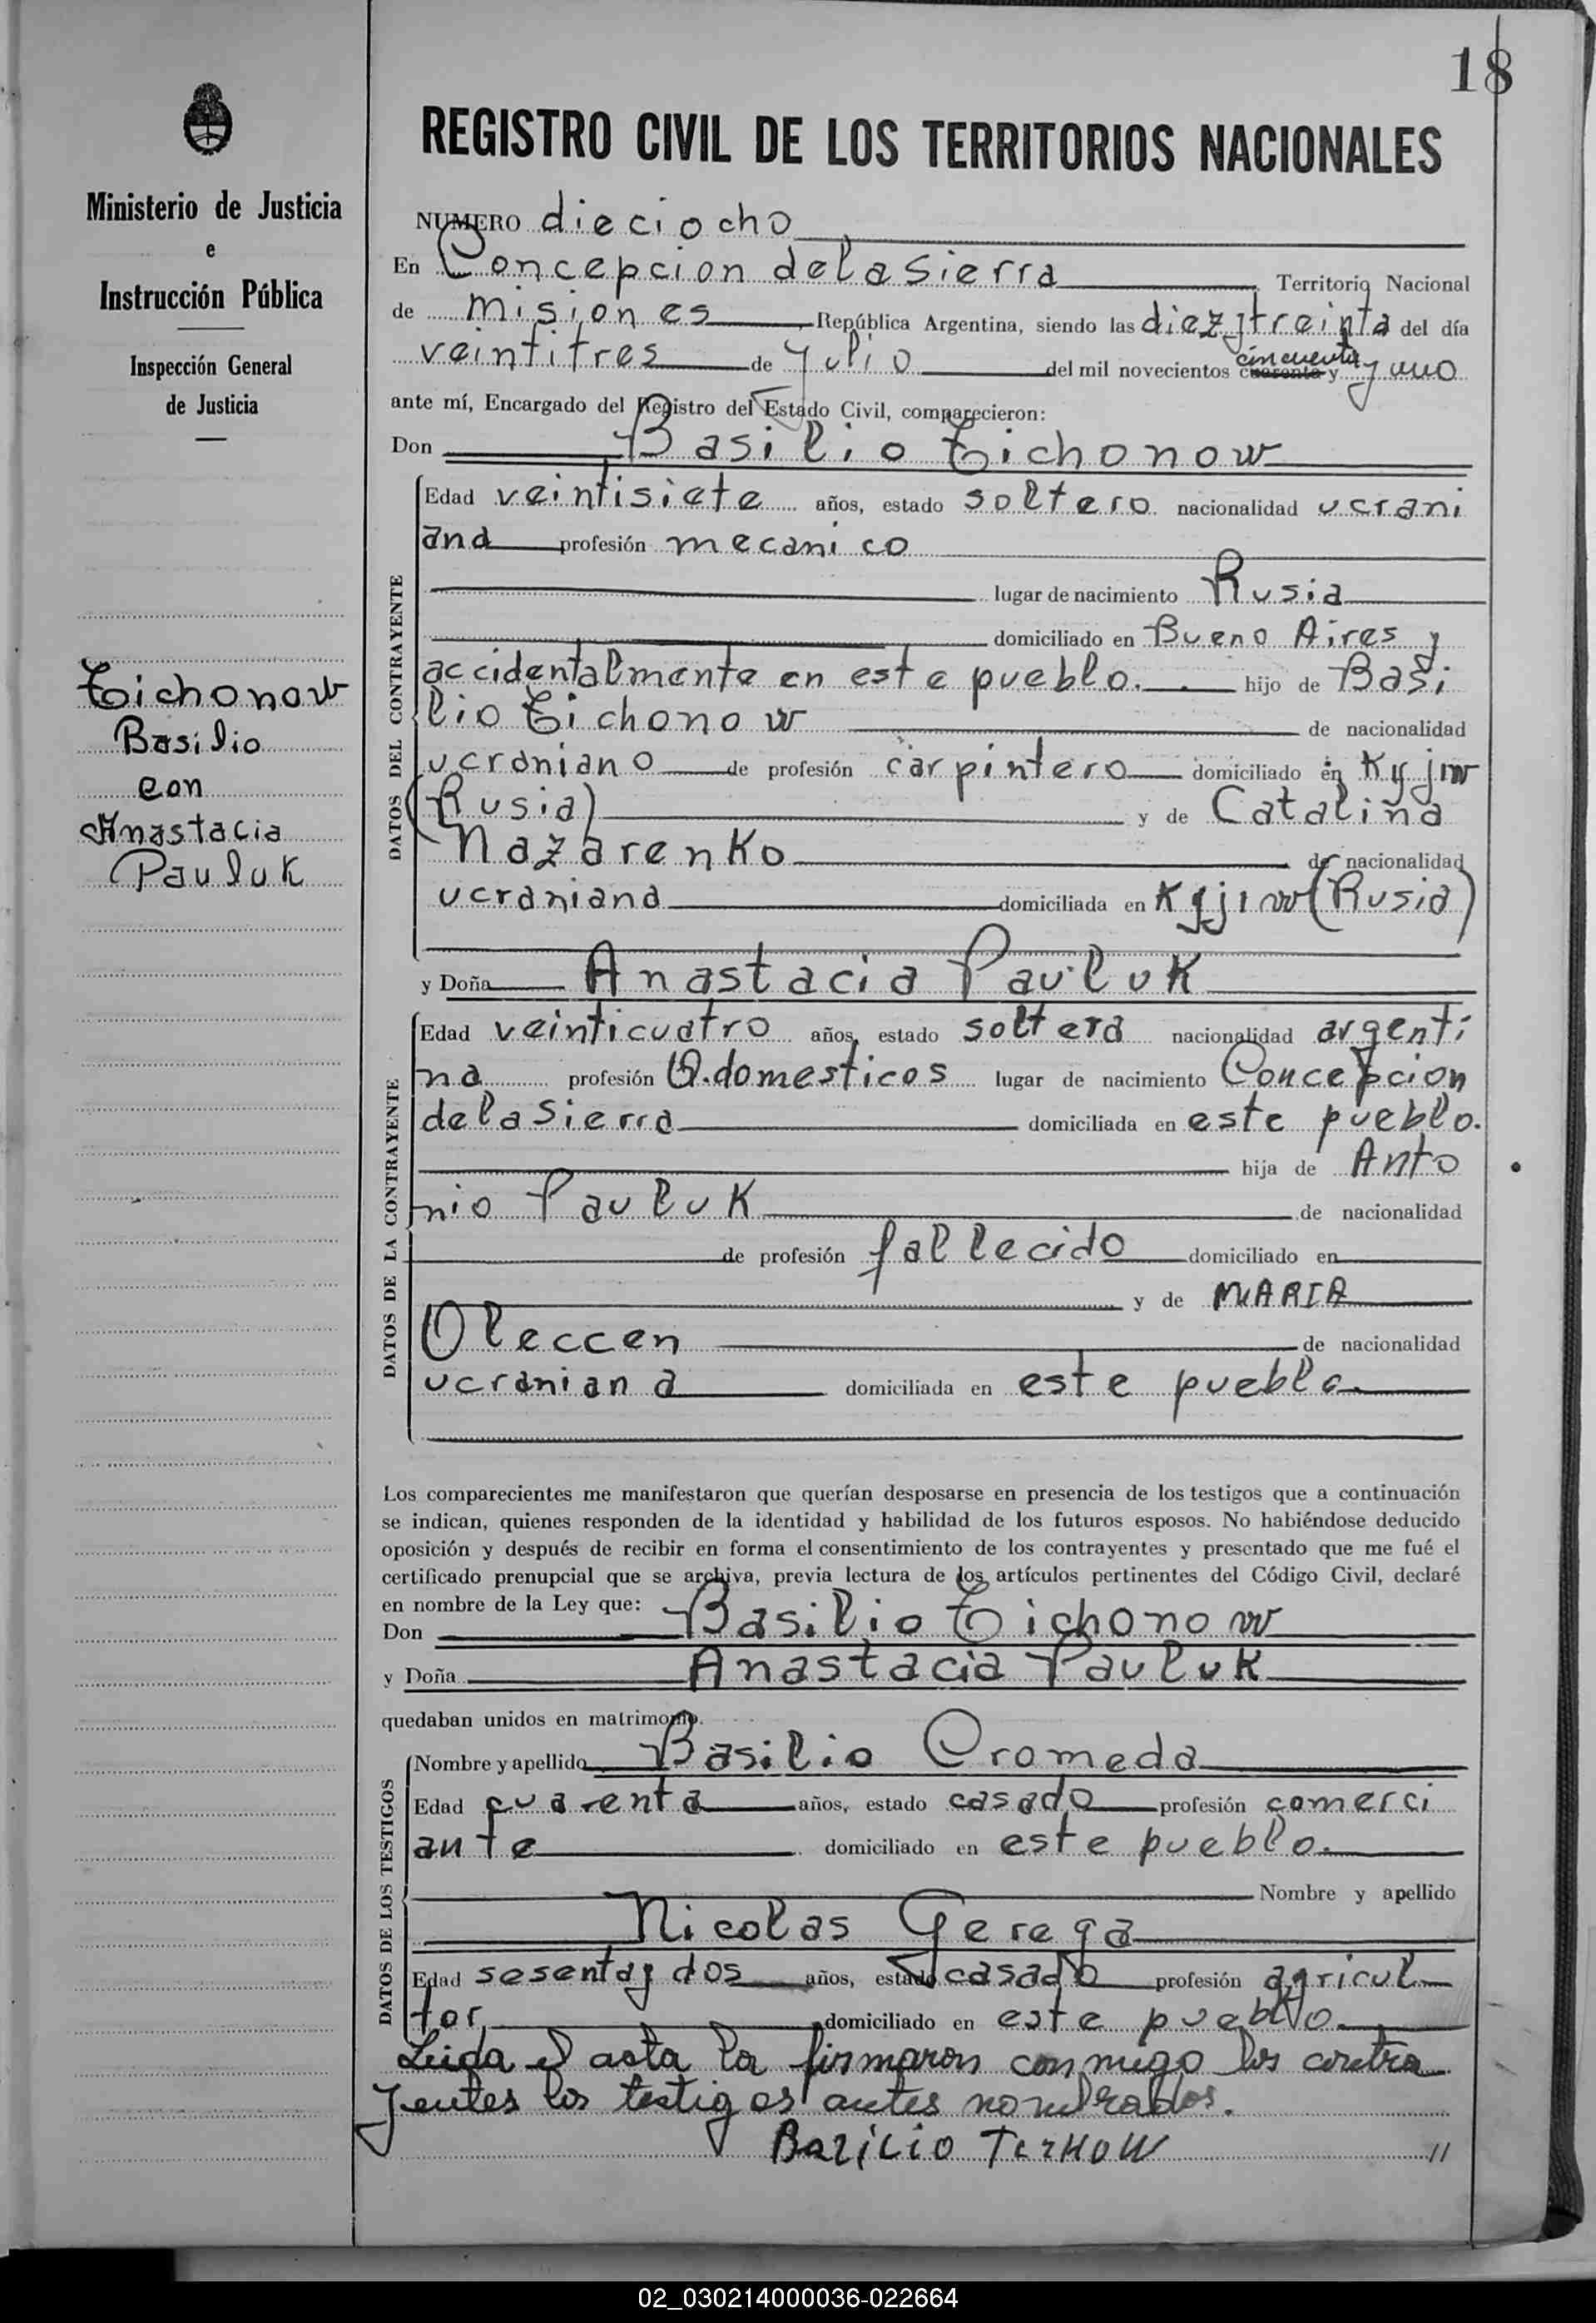 18
REGISTRO CIVIL DE LOS TERRITORIOS NACIONALES
Ministerio de Justicia
e
Instrucción Pública
Inspección General
de Justicia
Tichonow
Basilio
con
Anastacia
Pauluk
NUMERO dieciocho
En Concepcion de la Sierra Territorio Nacional
de Misiones República Argentina, siendo las diez y treinta del día
veintitres de Julio del mil novecientos cincuenta cuarenta y y uno
ante mí, Encargado del Registro del Estado Civil, comparecieron:
Don Basilio Tichonow
DATOS DEL CONTRAYENTE
Edad veintisiete años, estado soltero nacionalidad ucrani
ana profesión mecanico
lugar de nacimiento Rusia
domiciliado en Bueno Aires y
accidentalmente en este pueblo. hijo de Basi
lio Tichonow de nacionalidad
ucraniano de profesión carpintero domiciliado en Kyjiw
(Rusia) y de Cataliña
Nazarenko de nacionalidad
ucraniana domiciliada en Kyjiw (Rusia)
y Doña Anastacia Pauluk
DATOS DE LA CONTRAYENTE
Edad veinticuatro años, estado soltera nacionalidad argenti
na profesión Q. domesticos lugar de nacimiento Concepcion
de la Sierra domiciliada en este pueblo.
hija de Anto
nio Pauluk de nacionalidad
de profesión fallecido domiciliado en
y de MARIA
Oleccen de nacionalidad
ucraniana domiciliada en este pueblo.
Los comparecientes me manifestaron que querían desposarse en presencia de los testigos que a continuación
se indican, quienes responden de la identidad y habilidad de los futuros esposos. No habiéndose deducido
oposición y después de recibir en forma el consentimiento de los contrayentes y presentado que me fué el
certificado prenupcial que se archiva, previa lectura de los artículos pertinentes del Código Civil, declaré
en nombre de la Ley que:
Don Basilio Tichonow
y Doña Anastacia Pauluk
quedaban unidos en matrimonio.
DATOS DE LOS TESTIGOS
Nombre y apellido Basilio Cromeda
Edad cuarenta años, estado casado profesión comerci
ante domiciliado en este pueblo.
Nombre y apellido
Nicolas Gerega
Edad sesenta y dos años, estado casado profesión agricul
tor domiciliado en este pueblo.
Leida el acta la firmaron conmigo los contra
yentes los testigos antes nombrados.
//
02_030214000036-022664